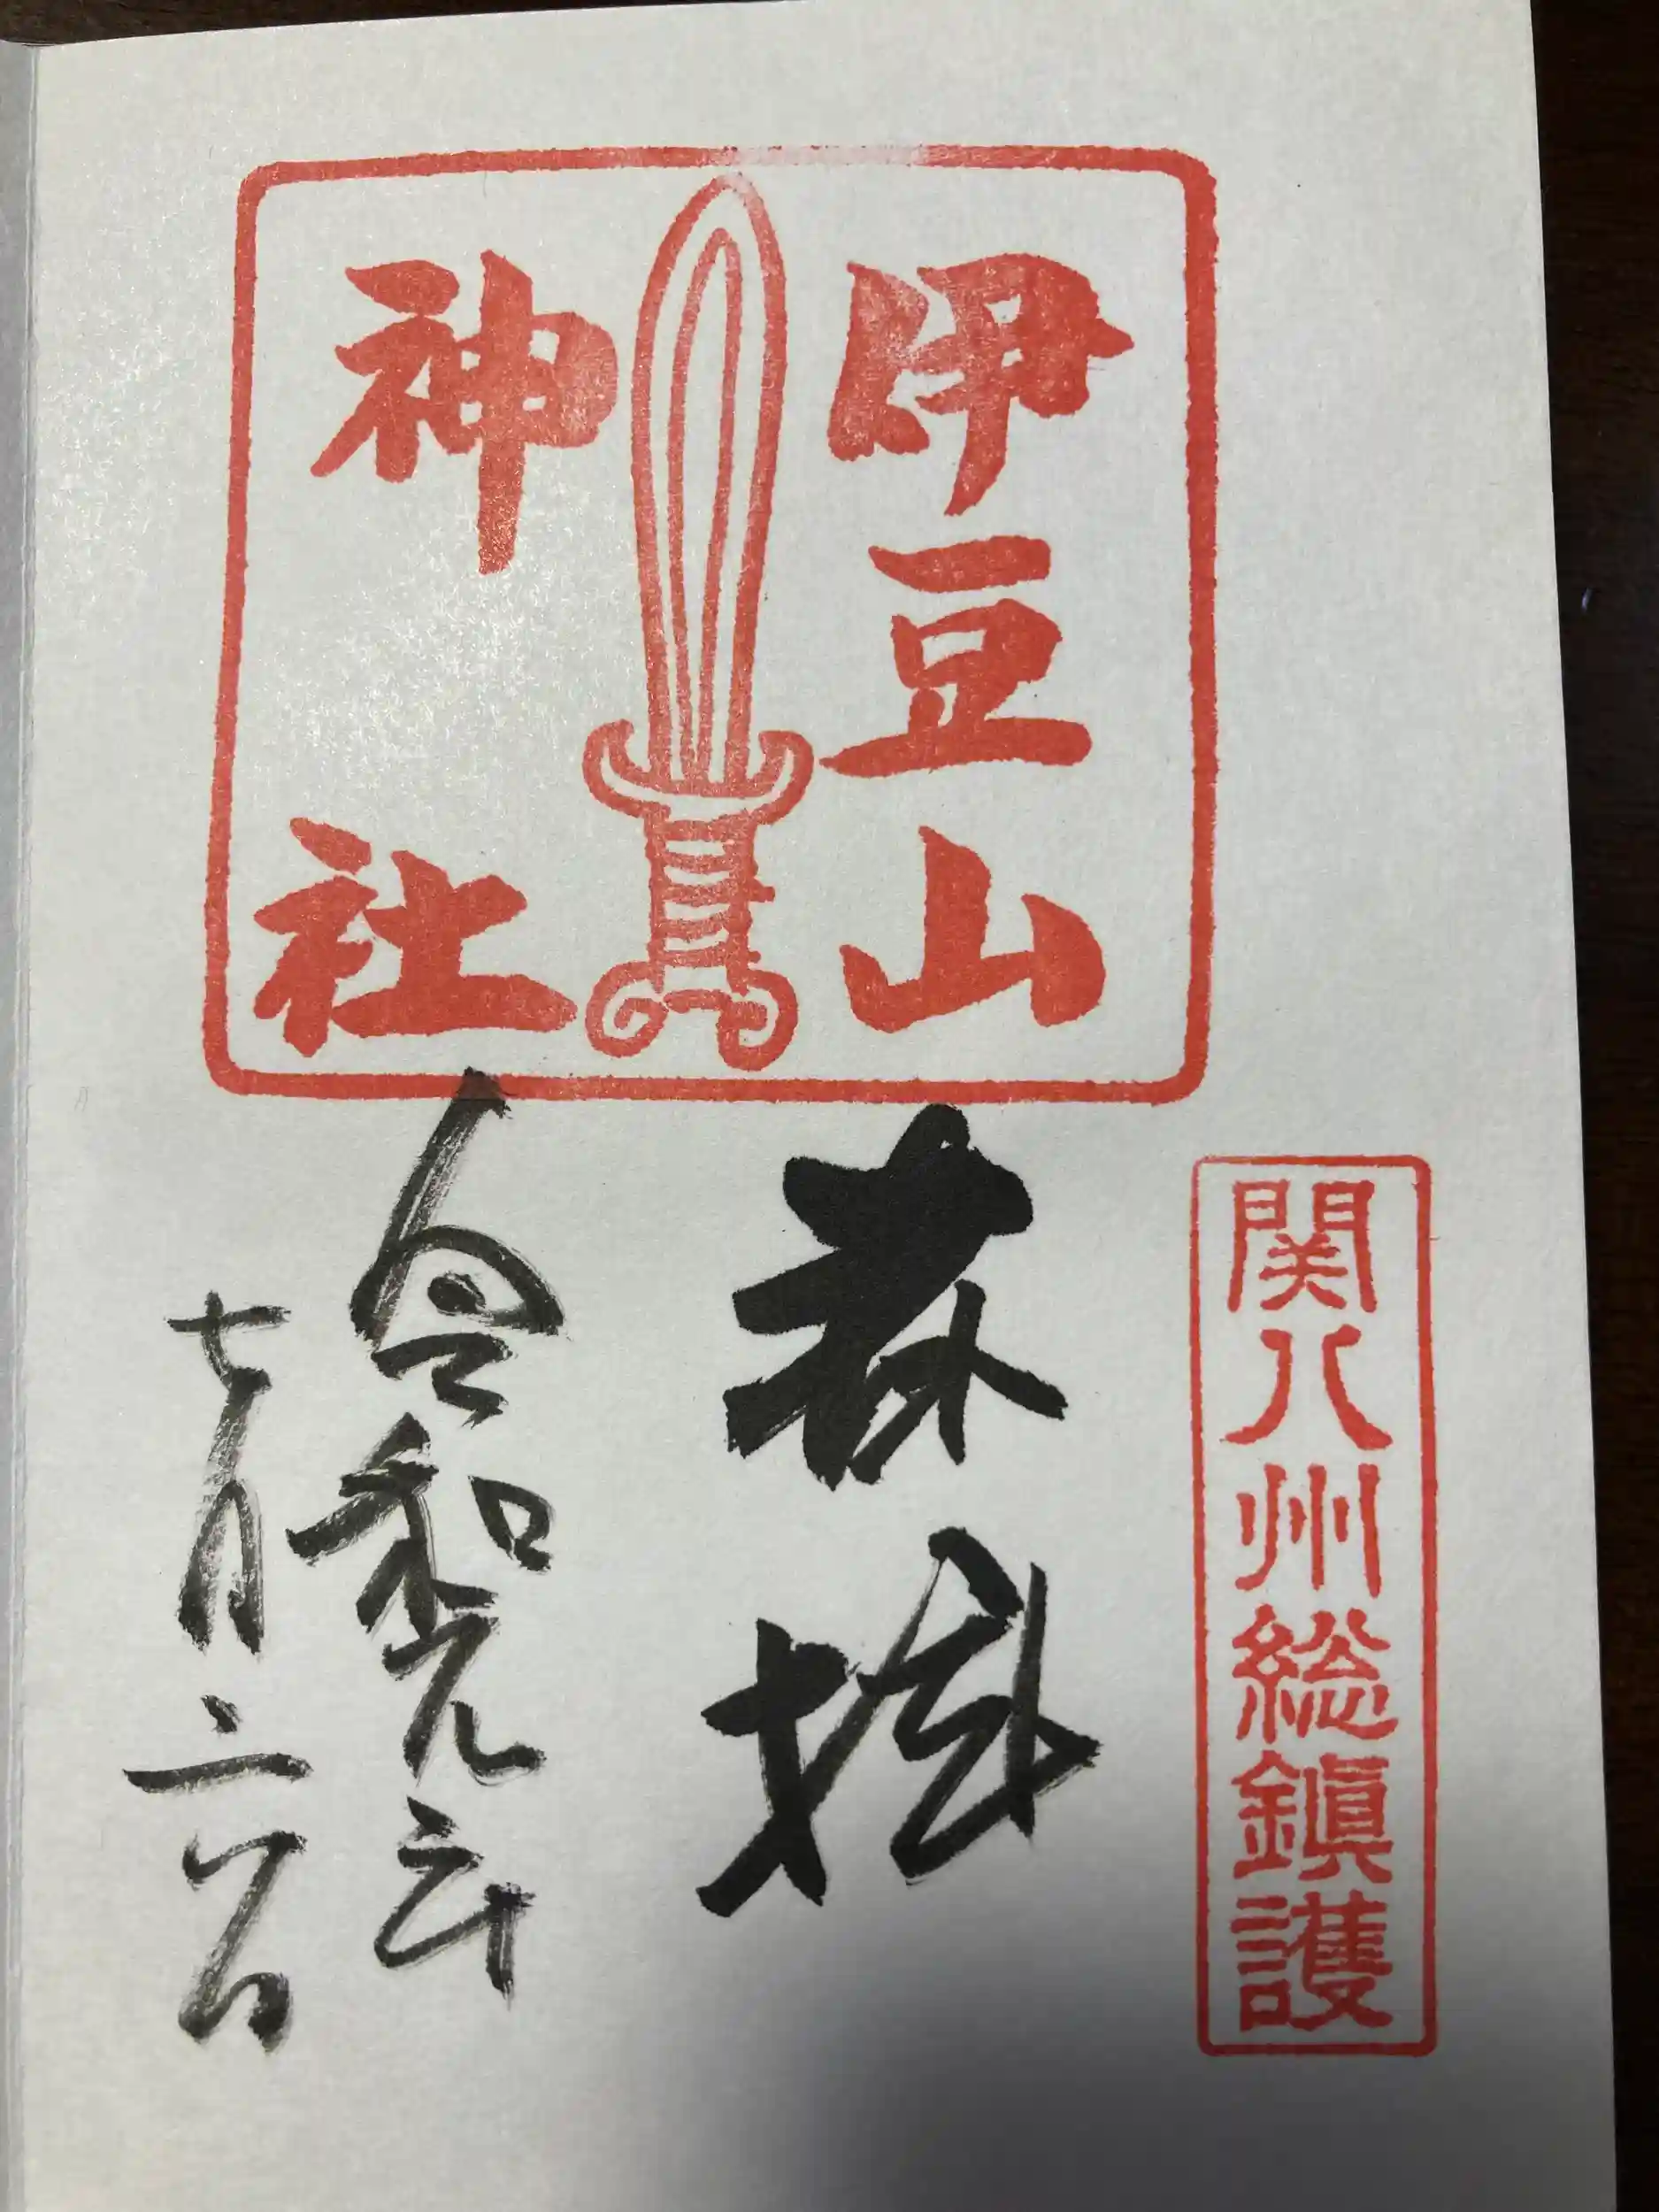 伊豆山
神社
関八州総鎭護
奉拝
令和元年
七月六日